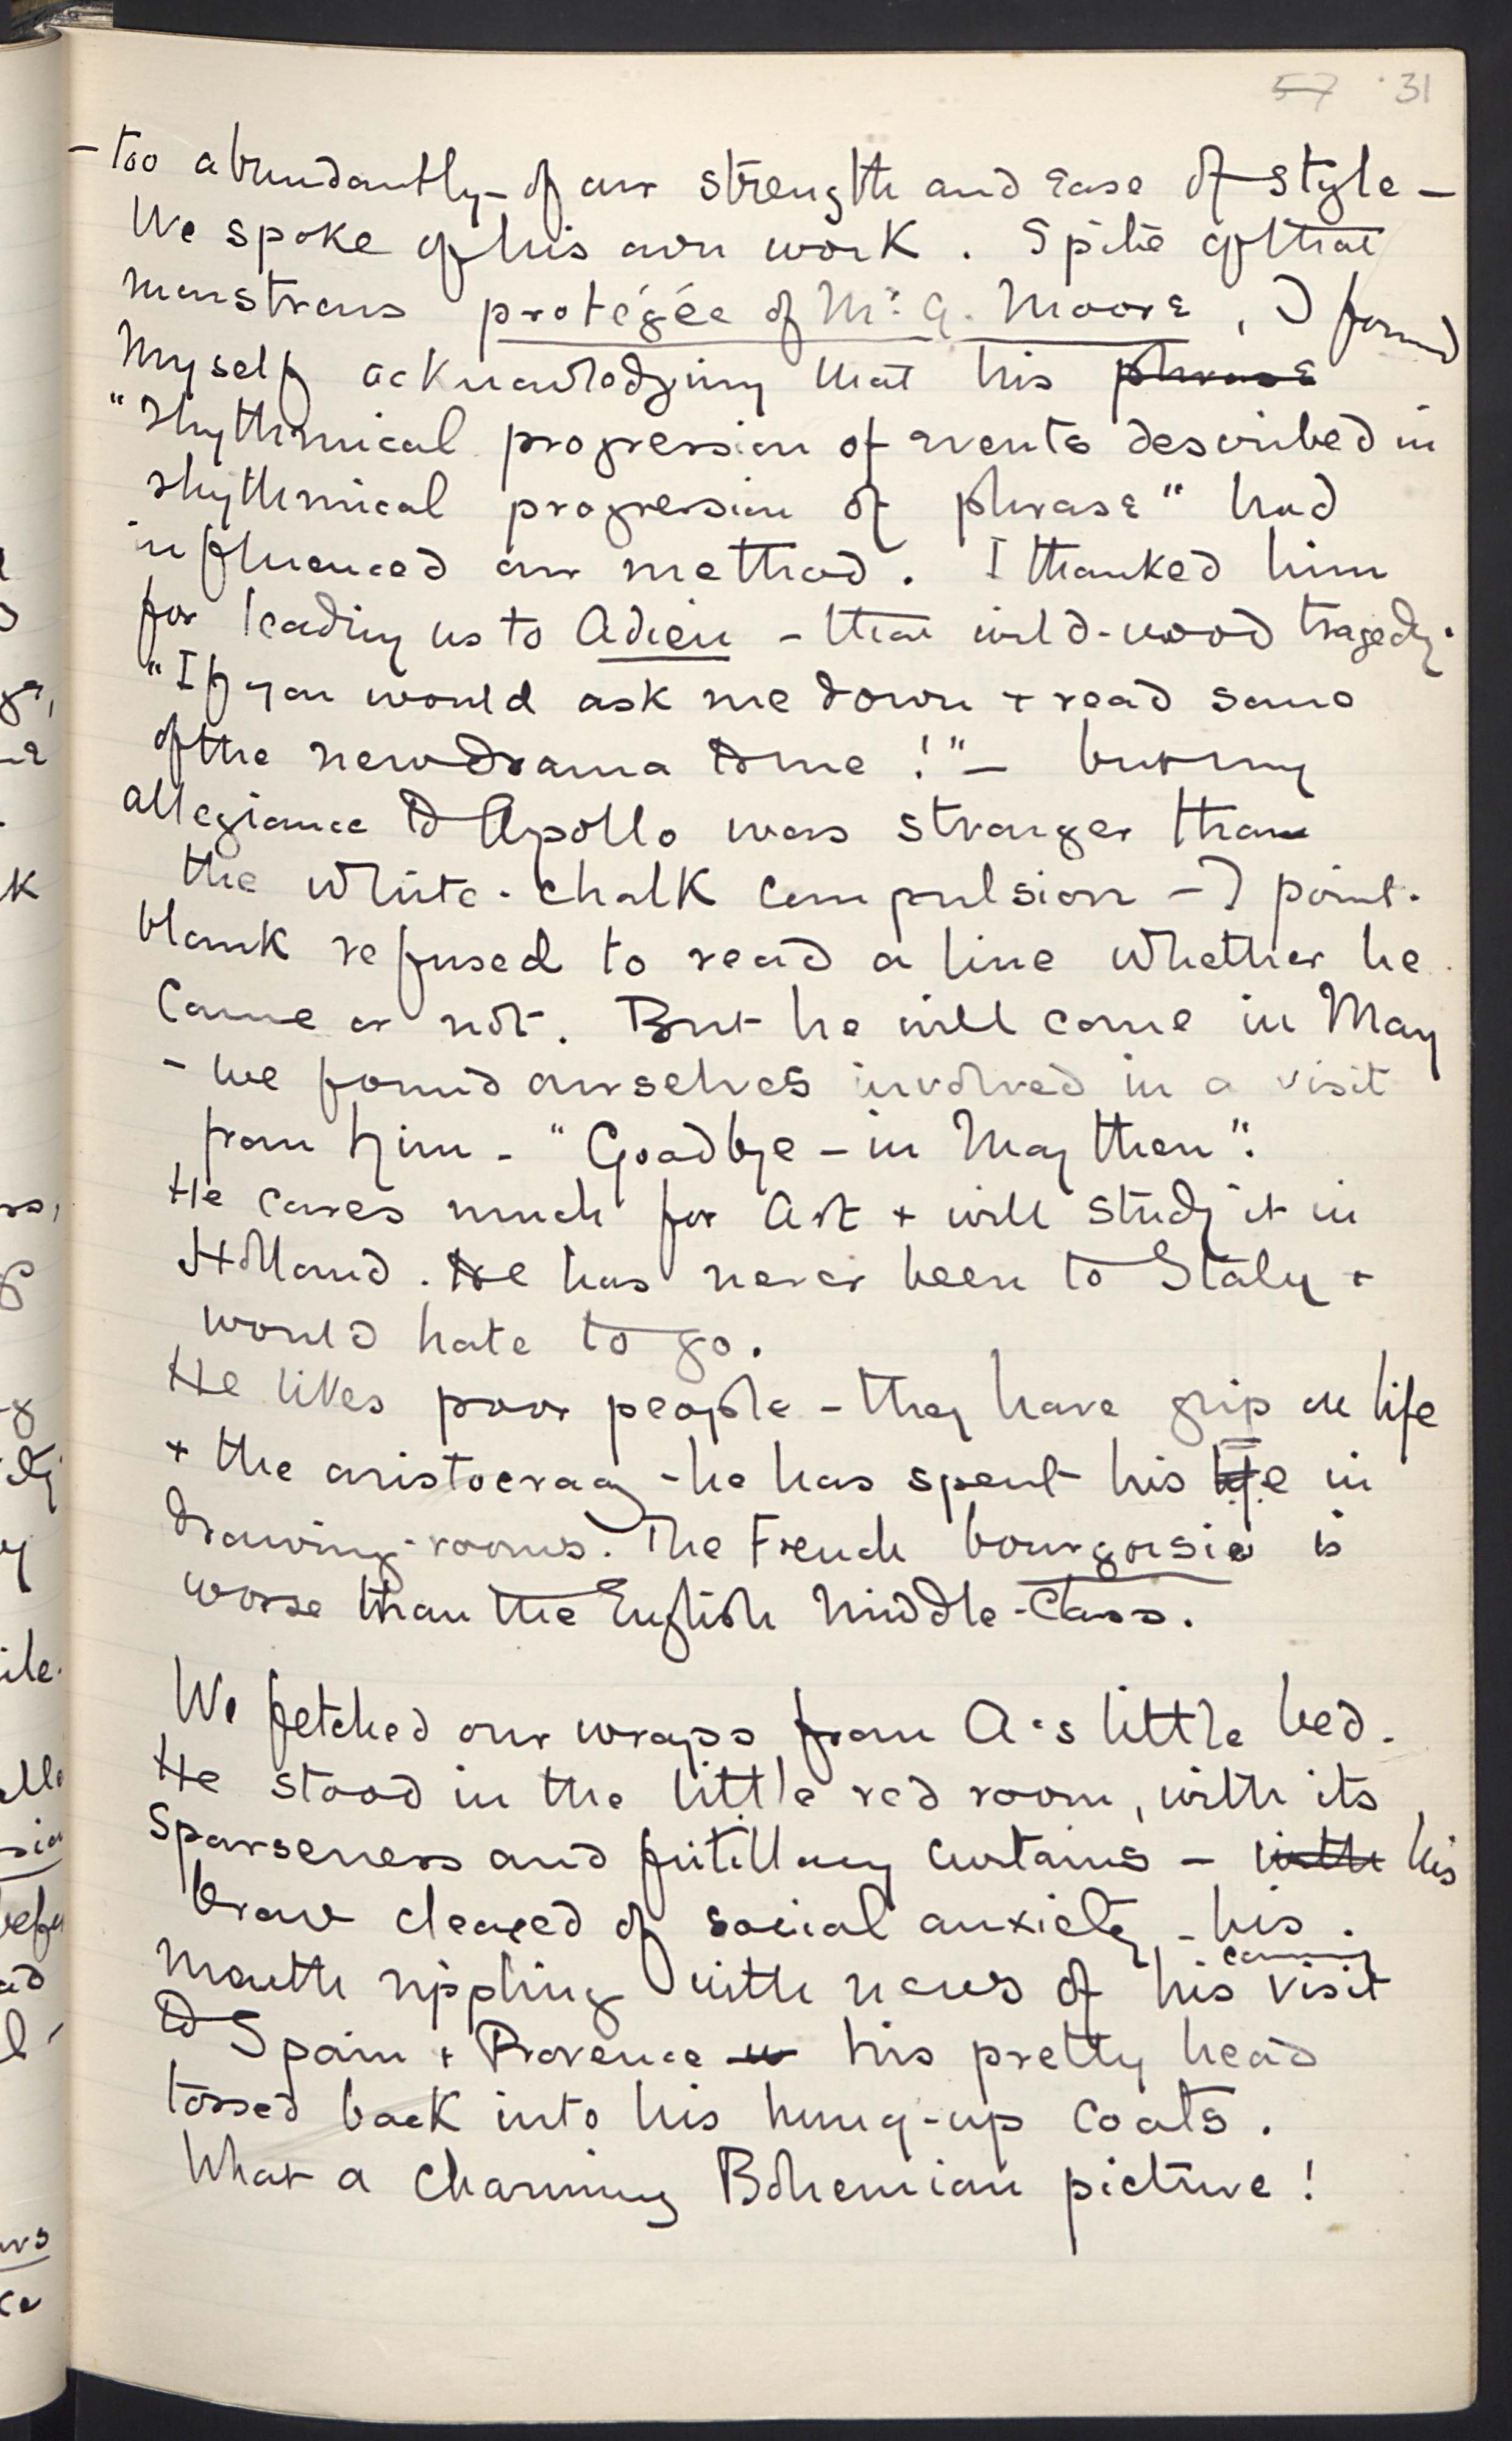 57 31
- too abundantly - of our strength and ease of style -
We spoke of his own work. Spite of that
monstrous protégée of Mr. G. Moore, I found
myself acknowledging that his phrase
"rhythmical progression of events described in
rhythmical progression of phrase" had
influenced our method. I thanked him
for leading us to Adieu - that wild-wood tragedy.
"If you would ask me down + read some
of the new drama to me!" - but my
allegiance to Apollo was stronger than
the white-chalk compulsion - I point-
blank refused to read a line whether he
came or not. But he will come in May
- we found ourselves involved in a visit
from him - "Goodbye - in May then".
He cares much for Art + will study it in
Holland. He has never been to Italy +
would hate to go.
He likes poor people - they have grip on life
+ the aristocracy - he has spent his life in
drawing-rooms. The French bourgoisie is
worse than the English Middle-Class.
We fetched our wraps from A's little bed.
He stood in the little red room, with its
sparseness and fritillary curtains - with his
brow cleared of social anxiety - his
mouth rippling with news of his coming visit
to Spain + Provence his pretty head
tossed back into his hung-up coats.
What a charming Bohemian picture!